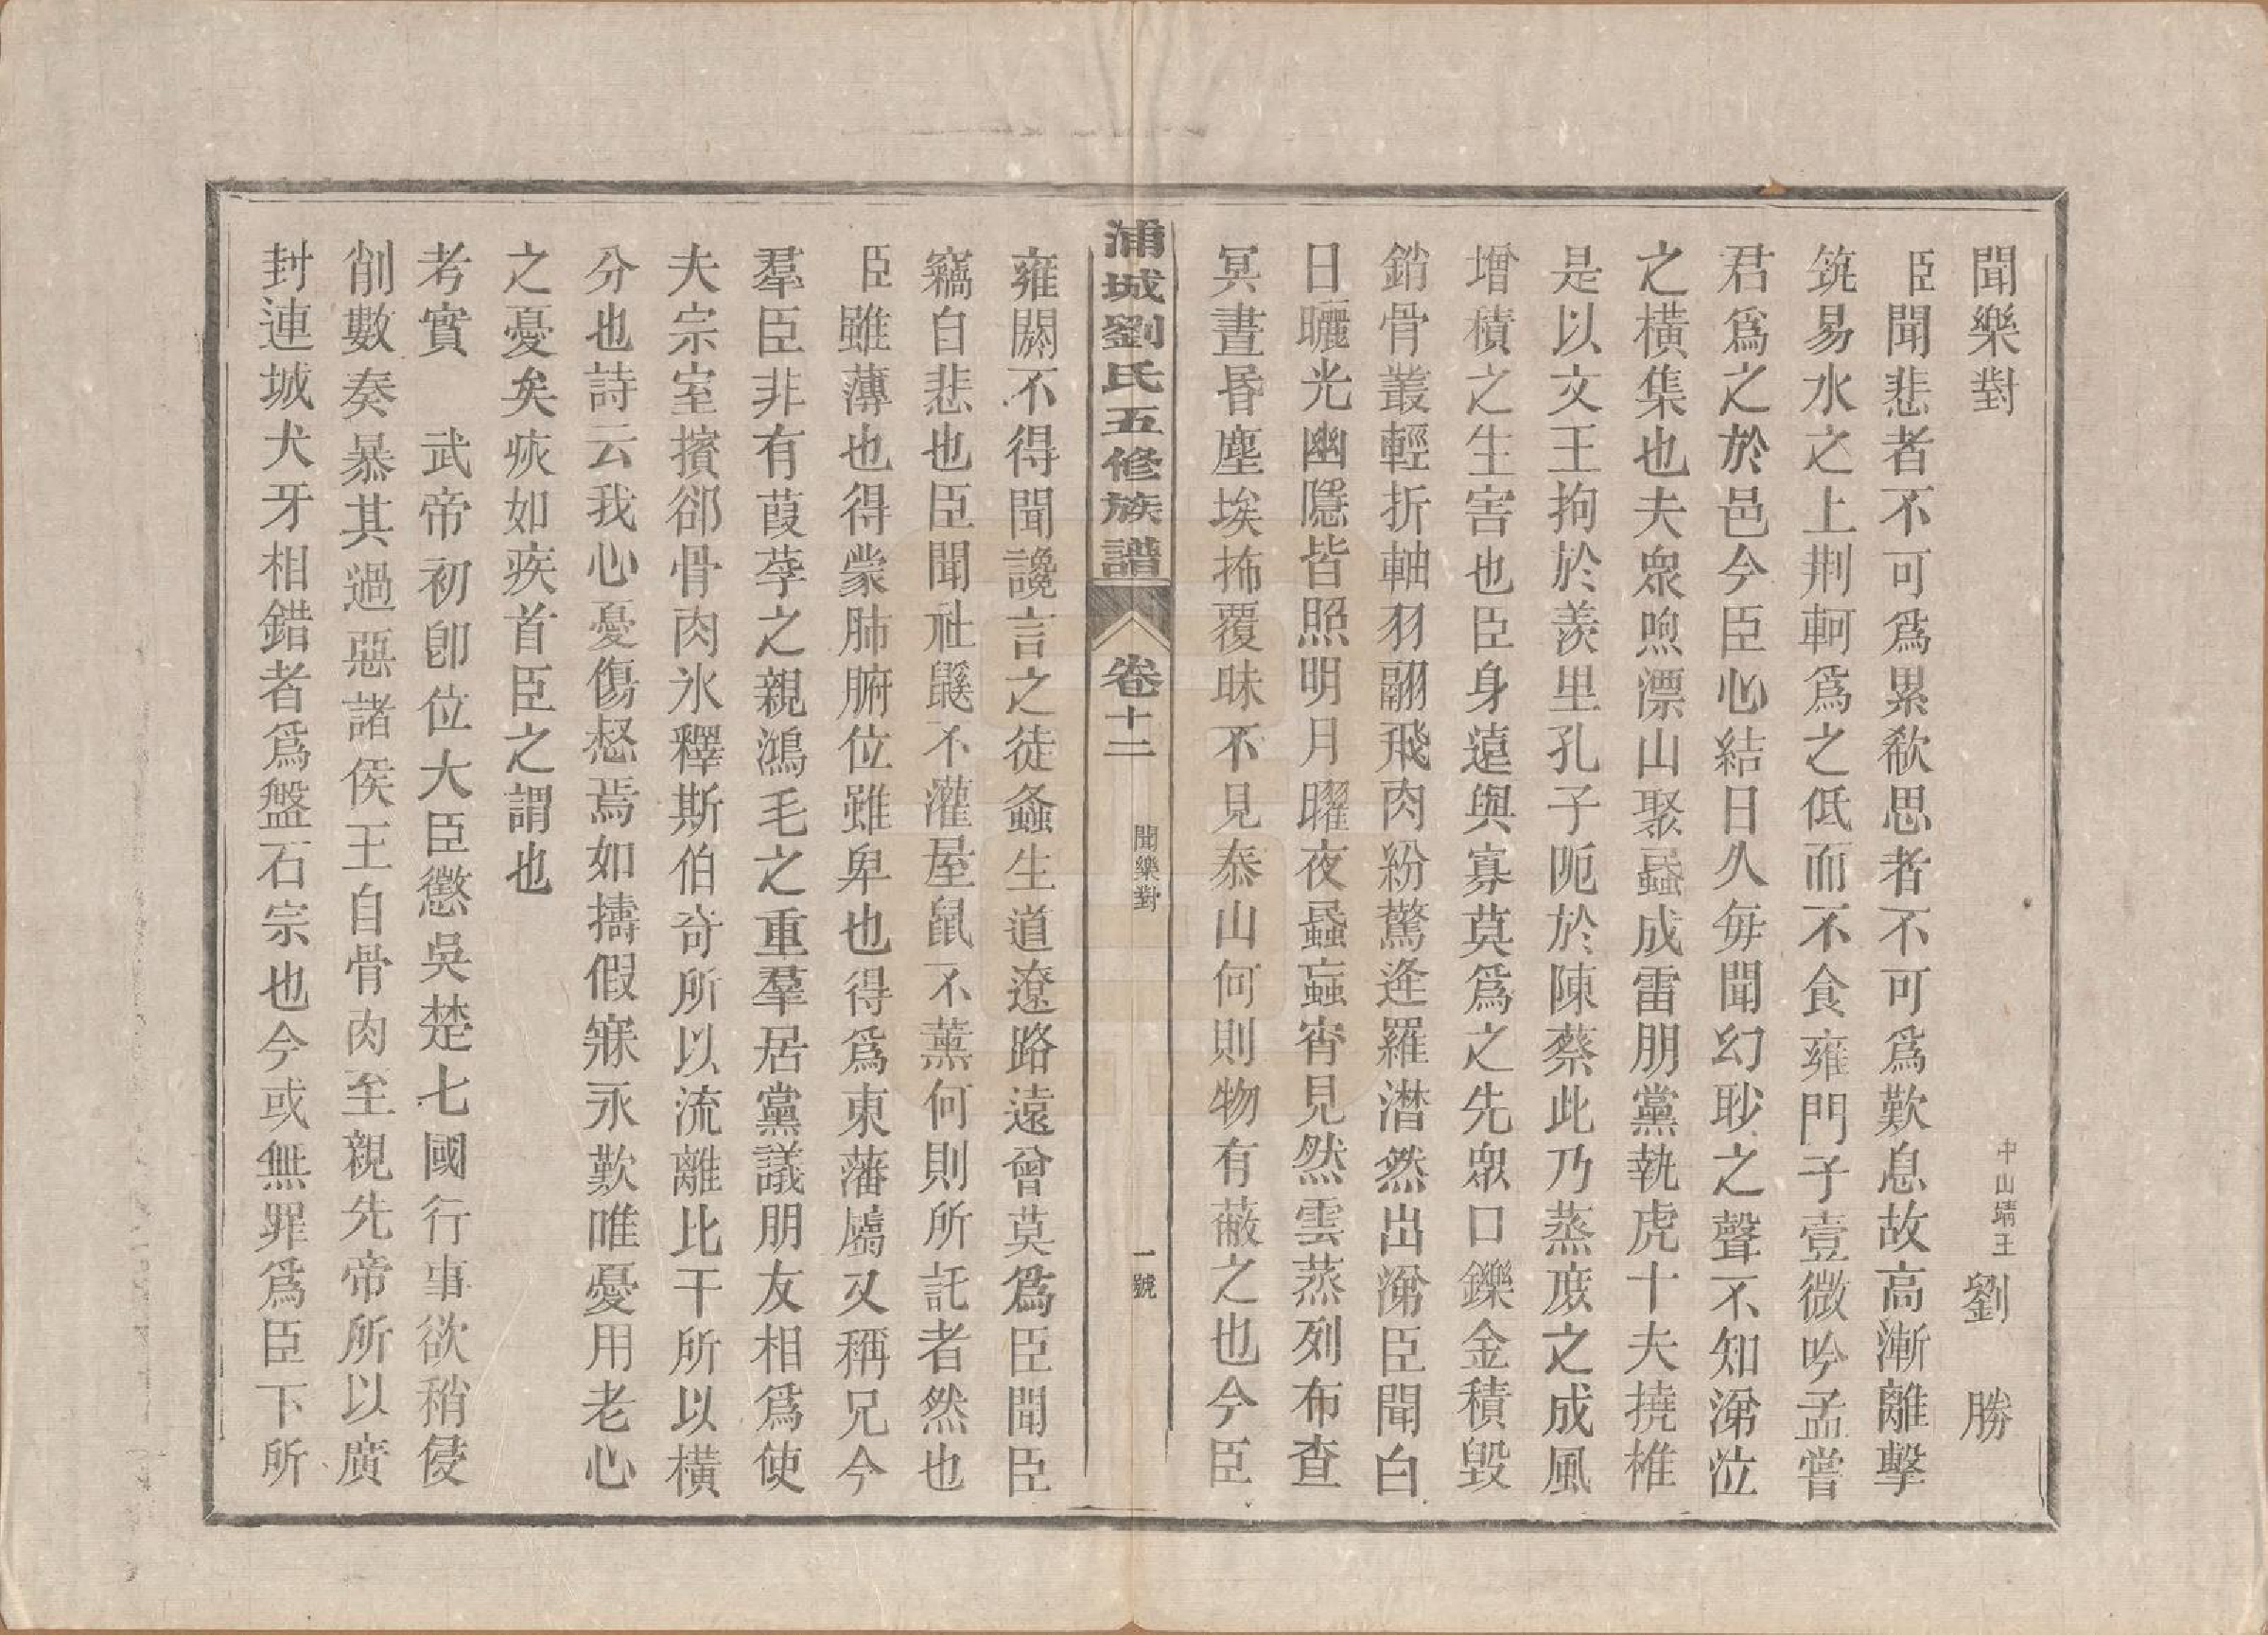 聞樂對
中山靖王 劉 勝
臣聞悲者不可爲累欷思者不可爲歎息故高漸離擊
筑易水之上荆軻爲之低而不食雍門子壹微吟孟嘗
君爲之於邑今臣心結日久每聞幻眇之聲不知涕泣
之橫集也夫衆喣漂山聚蟁成雷朋黨執虎十夫撓椎
是以文王拘於羑里孔子阨於陳蔡此乃蒸庶之成風
增積之生害也臣身遠與寡莫爲之先衆口鑠金積毀
銷骨叢輕折軸羽翮飛肉紛驚逄羅潸然出涕臣聞白
日曬光幽隱皆照明月曜夜蟁蝱宵見然雲蒸列布杳
冥晝昏塵埃抪覆昧不見泰山何則物有蔽之也今臣
浦城劉氏五修族譜
卷十二
聞樂對
一號
雍閼不得聞讒言之徒螽生道遼路遠曾莫爲臣聞臣
竊自悲也臣聞社鼷不灌屋鼠不薰何則所託者然也
臣雖薄也得蒙肺腑位雖卑也得爲東藩屬又稱兄今
羣臣非有葭莩之親鴻毛之重羣居黨議朋友相爲使
夫宗室擯郤骨肉氷釋斯伯奇所以流離比干所以橫
分也詩云我心憂傷惄焉如擣假寐永歎唯憂用老心
之憂矣疢如疾首臣之謂也
考實 武帝初卽位大臣懲吳楚七國行事欲稍侵
削數奏暴其過惡諸侯王自骨肉至親先帝所以廣
封連城犬牙相錯者爲盤石宗也今或無罪爲臣下所